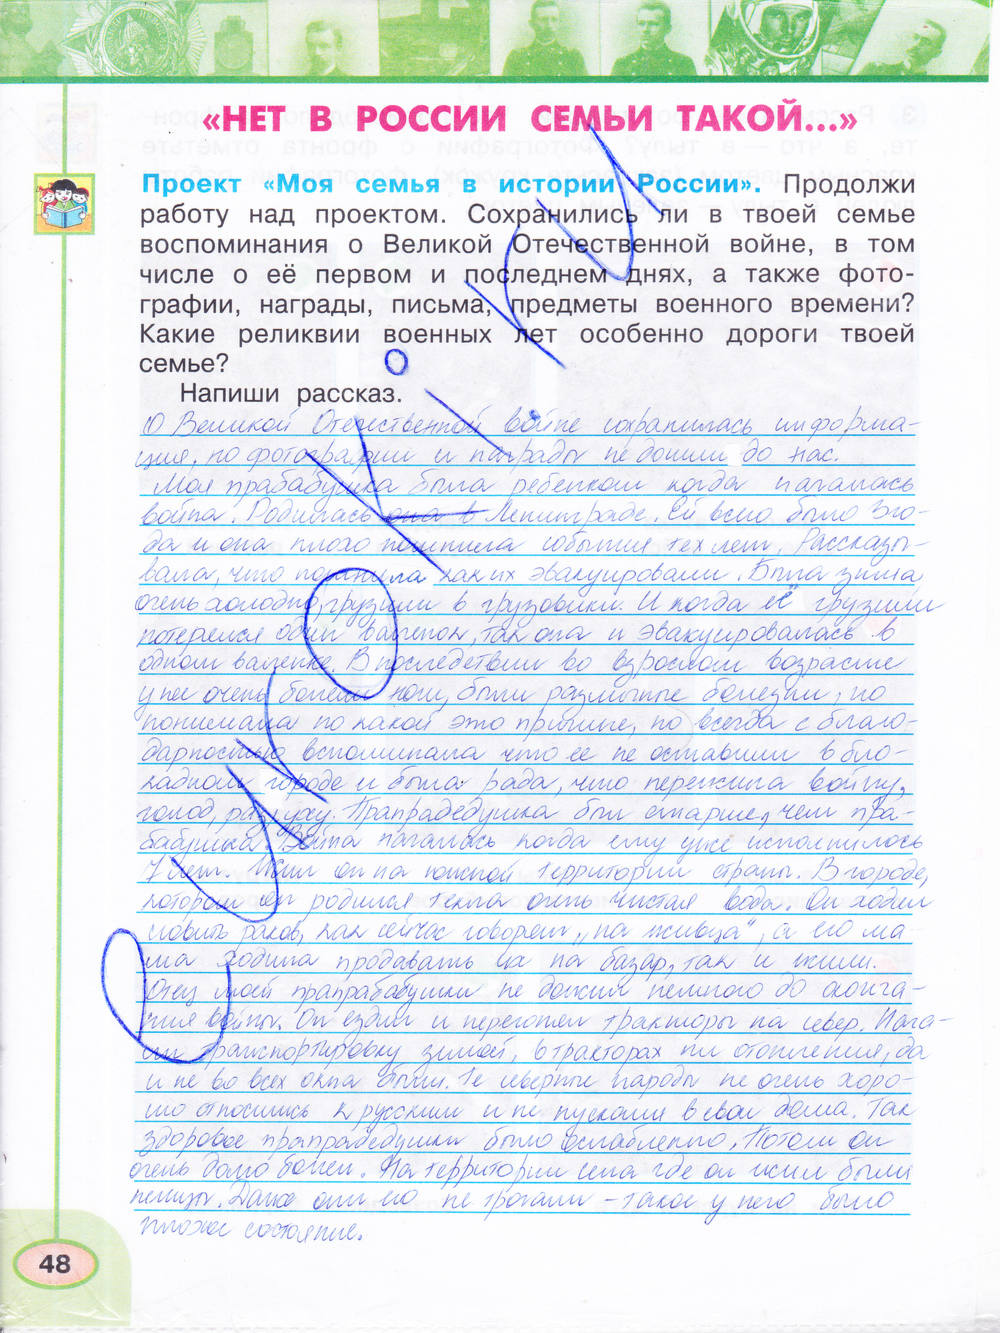 «НЕТ В РОССИИ СЕМЬИ ТАКОЙ...»
Проект «Моя семья в истории России». Продолжи
работу над проектом. Сохранились ли в твоей семье
воспоминания о Великой Отечественной войне, в том
числе о её первом и последнем днях, а также фото-
графии, награды, письма, предметы военного времени?
Какие реликвии военных лет особенно дороги твоей
семье?
Напиши рассказ.
О Великой Отечественной войне сохранилась информа-
ция, но фотографии и награды не дошли до нас.
Моя прабабушка была ребенком когда началась
война. Родилась она в Ленинграде. Ей всего было 3го-
да и она плохо помнила события тех лет. Рассказы-
вала, что помнила как их эвакуировали. Была зима
очень холодно, грузили в грузовики. И когда её грузили
потерялся один валенок, так она и эвакуировалась в
одном валенке. В последствии во взрослом возрасте
у нее очень болели ноги, были различные болезни, но
понимала по какой это причине, но всегда с благо-
дарностью вспоминала что ее не оставили в бло-
кадном городе и была рада, что пережила войну,
голод, разруху. Прапрадедушка был старше, чем пра-
бабушка. Война началась когда ему уже исполнилось
7 лет. Жил он на южной территории страны. В городе,
котором он родился текла очень чистая вода. Он ходил
ловить раков, как сейчас говорят „на живца“, а его ма-
ма ходила продавать их на базар, так и жили.
Отец моей прапрабабушки не дожил немного до оконча-
ния войны. Он ездил и перегонял тракторы на север. Нача-
ли транспортировку зимой, в тракторах ни отопления, да
и не во всех окна были. Те северные народы не очень хоро-
шо относились к русским и не пускали в свои дома. Так
здоровье прапрадедушки было ослабленно. Потом он
очень долго болел. На территории села где он жил были
немцы. Даже они его не трогали - такое у него было
плохое состояние.
48